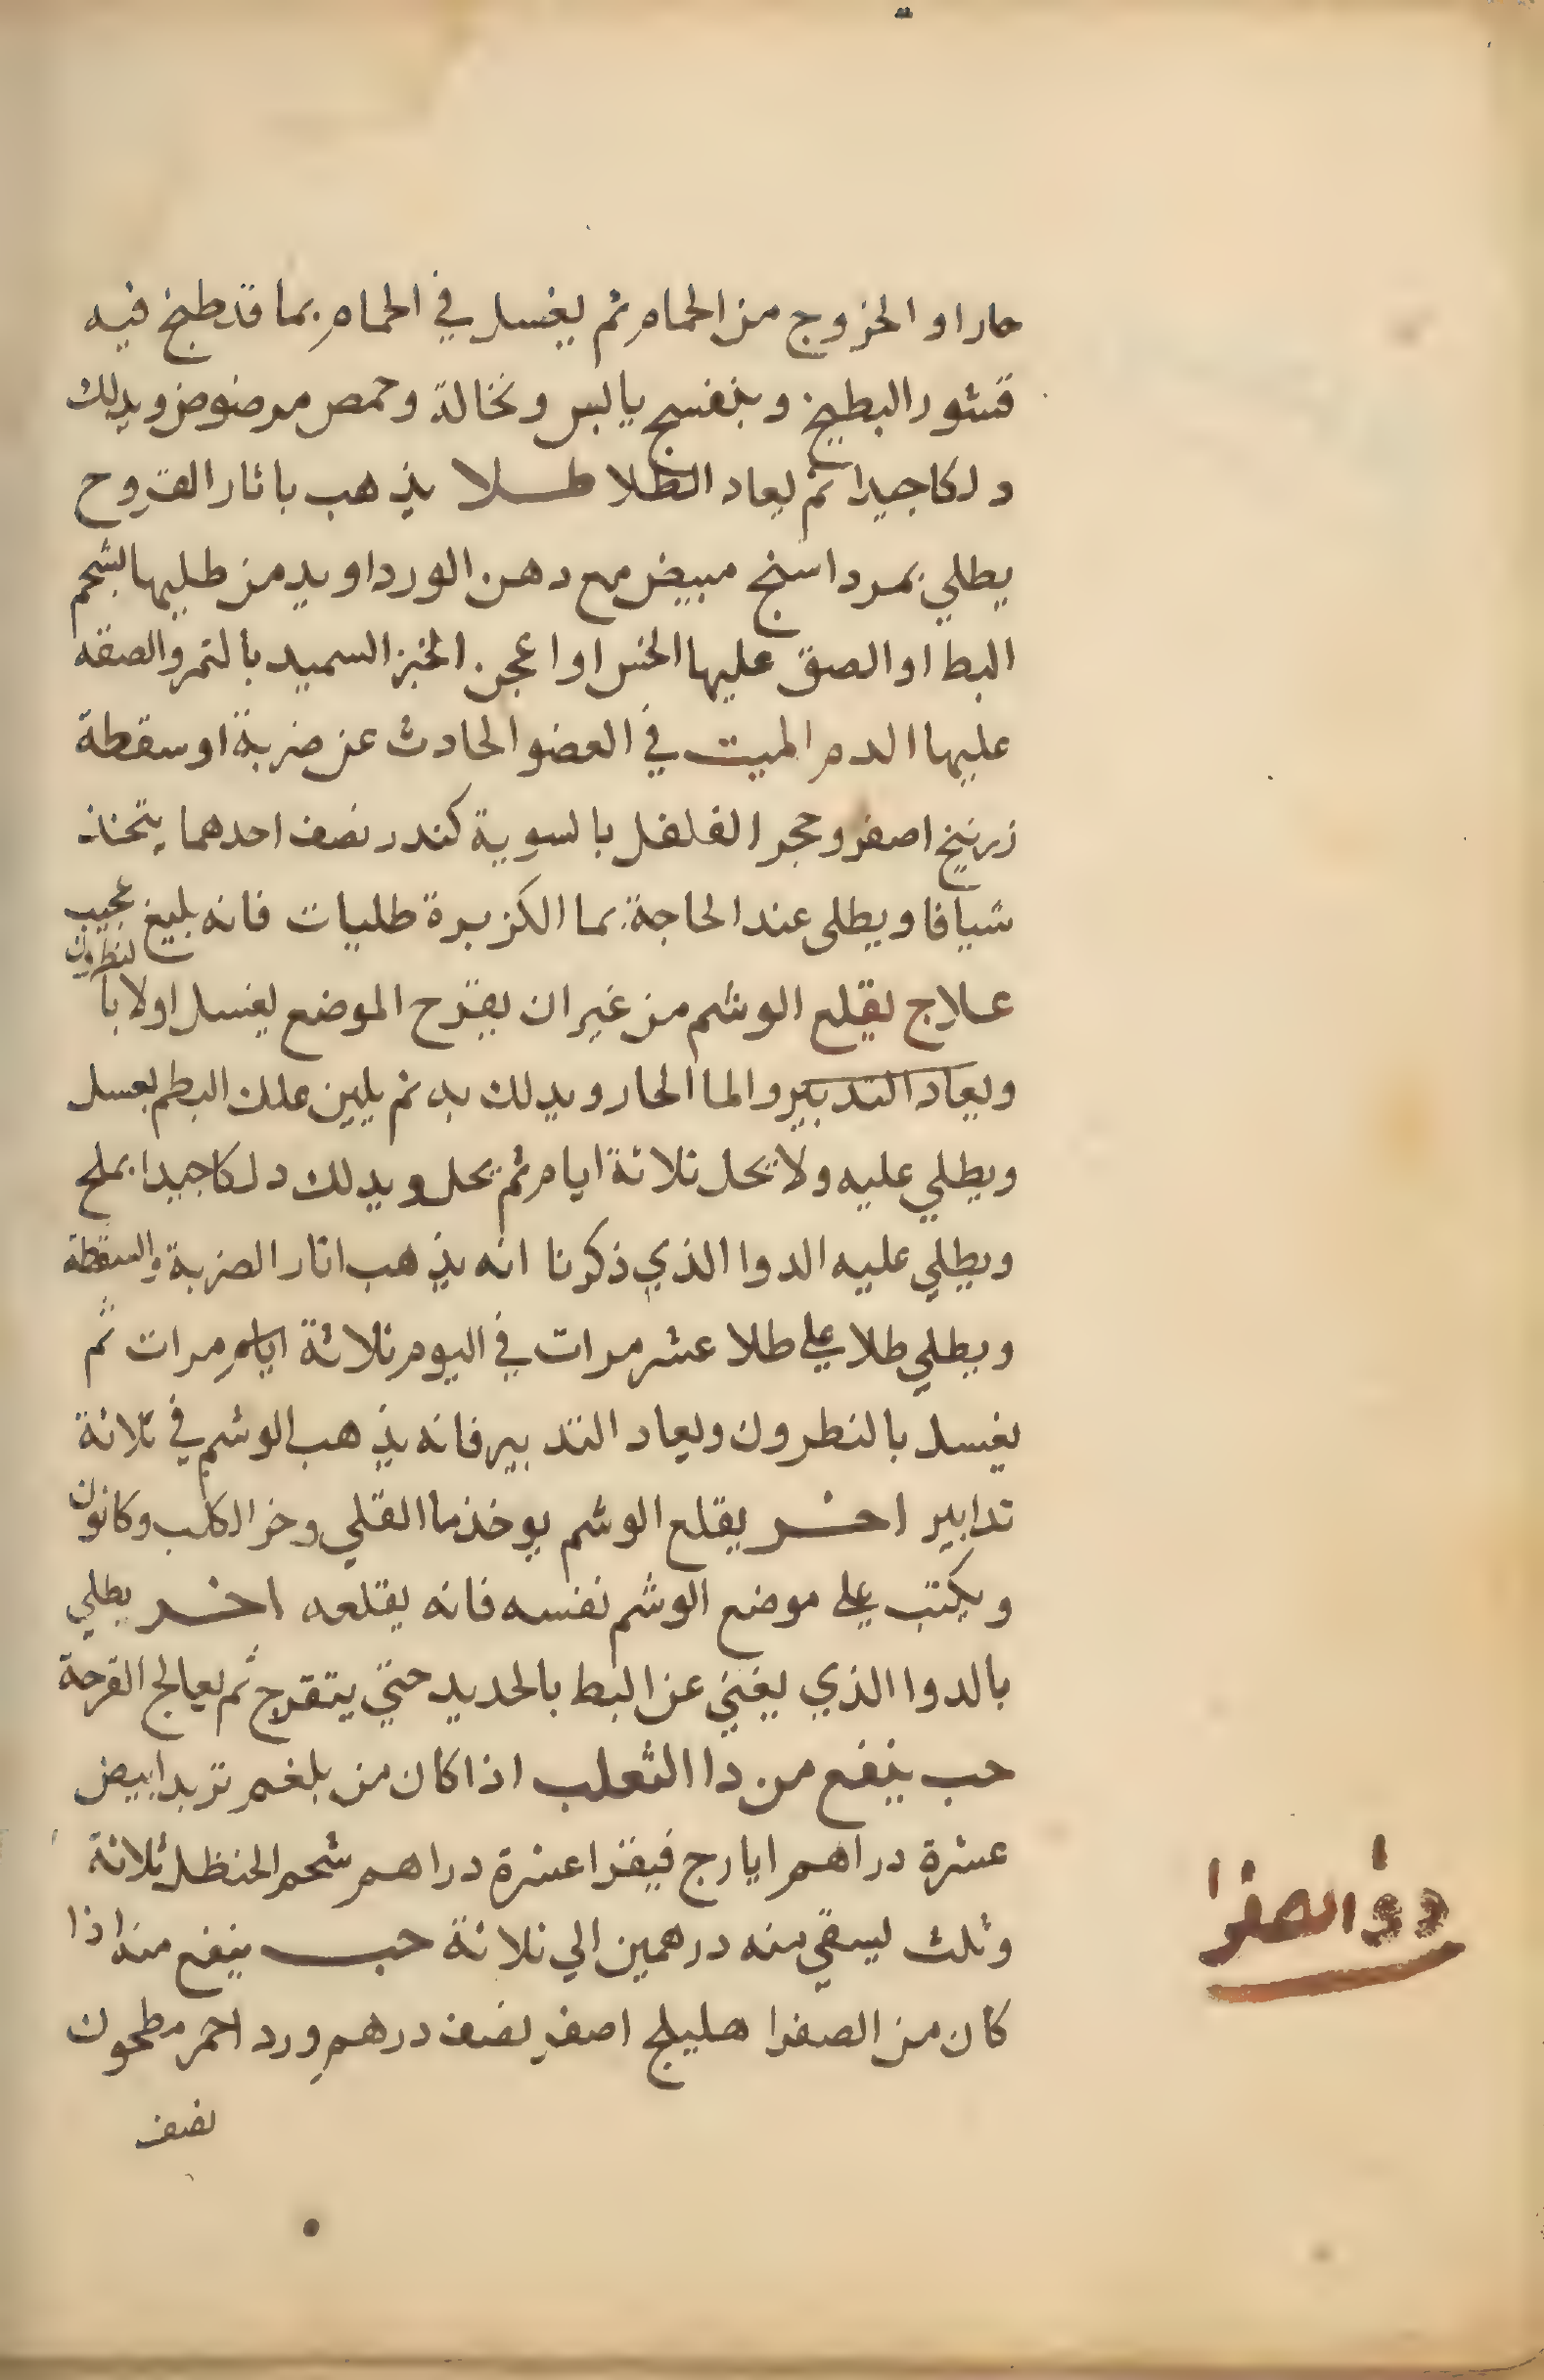 حارا او الخزوج من الحمام ثم يغسل في الحمام بما قد طبخ فيه
قشور البطيخ وبنفسج يابس ونخالة وحمص مرضوض ويدلك
دلكا جيدا ثم يعاد الطلا طلا يذهب باثار القروح
يطلي بمرداسنج مبيض مع دهن الورد او يدمن طليها بشحم
البط او الصق عليها الخس او اعجن الخبز السميد بالتمر والصقه
عليها الدم الميت في العضو الحادث عن ضربة او سقطة
زرنيخ اصفر وحجر الفلفل بالسوية كندر نصف احدهما يتخذ
شيافا ويطلى عند الحاجة بما الكزبرة طليات فانه بليغ عجيب
علاج يقلع الوشم من غير ان يقرح الموضع يغسل اولا بالنطرون
ويعاد التدبير والما الحار ويدلك به ثم يلين علك البطم بعسل
ويطلي عليه ولا يحل ثلاثة ايام ثم يحل ويدلك دلكا جيدا بملح
ويطلي عليه الدوا الذي ذكرنا انه يذهب اثار الضربة والسقطة
ويطلي طلا علي طلا عشر مرات في اليوم ثلاثة ايام مرات ثم
يغسل بالنطرون ويعاد التدبير فانه يذهب الوشم في ثلاثة
تدابير اخر يقلع الوشم يوخذ ما القلي وخر الكلب وكانون
ويكتب علي موضع الوشم نفسه فانه يقلعه اخر يطلي
بالدوا الذي يغني عن البط بالحديد حتي يتقرح ثم يعالج القرحة
حب ينفع من دا الثعلب اذا كان من بلغم تربد ابيض
عشرة دراهم ايارج فيقرا عشرة دراهم شحم الحنظل ثلاثة
وثلث يسقي منه درهمين الي ثلاثة حب ينفع منه اذا
كان من الصفرا هليلج اصفر نصف درهم ورد احمر مطحون
نصف
دوا الصفرا